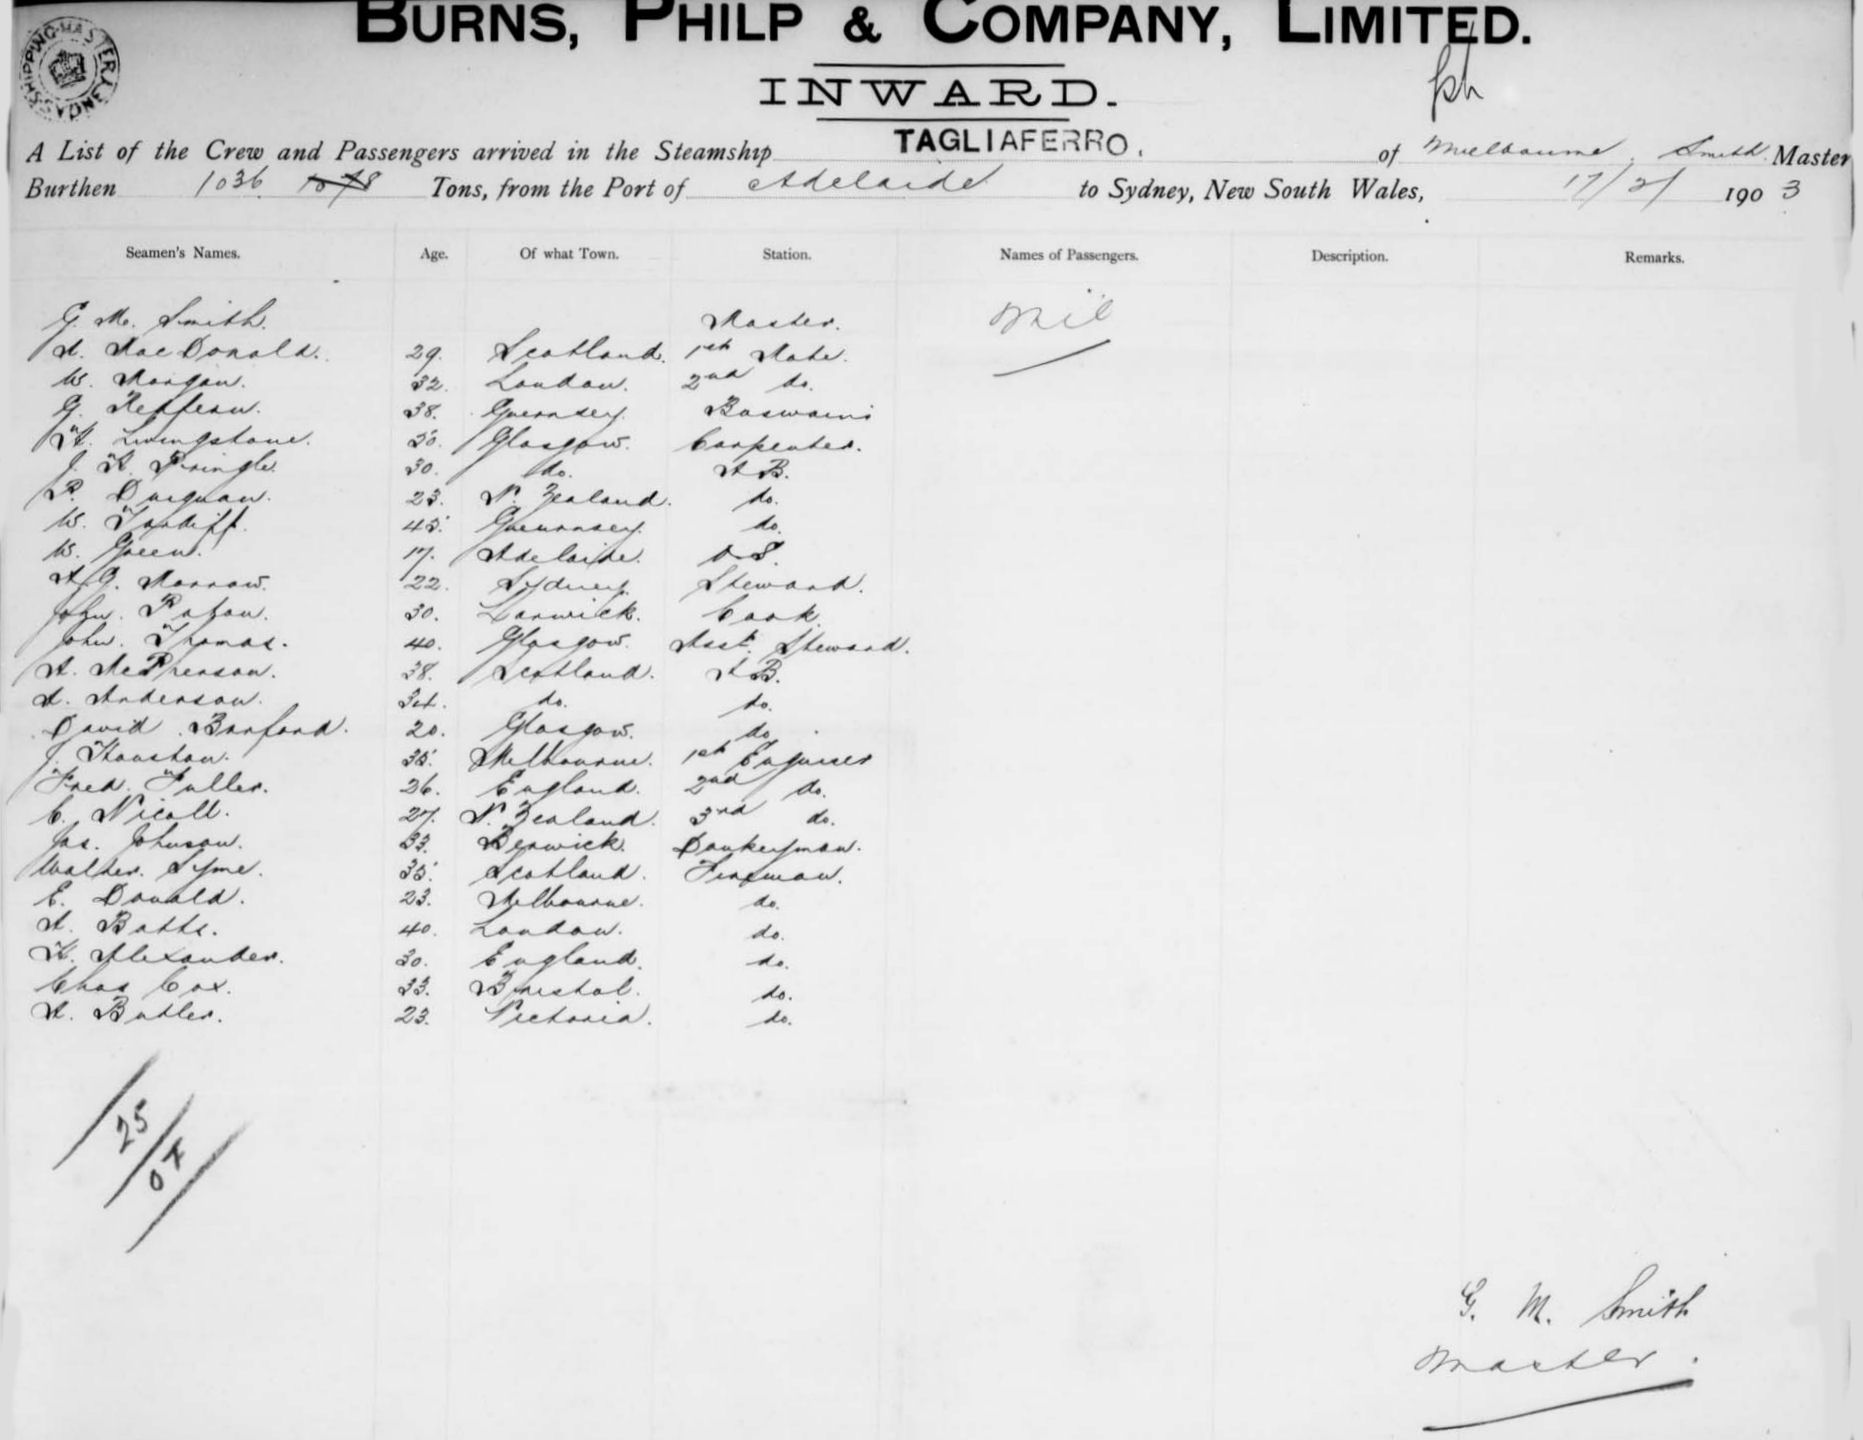 BURNS, PHILP & COMPANY, LIMITED.
INWARD.
A List of the Crew and Passengers arrived in the Steamship TAGLIAFERRO. of Melbourne, Smith Master
Burthen 1036 1078 Tons, from the Port of Adelaide to Sydney, New South Wales, 17/2/ 1903
Seamen's Names. Age. Of what Town. Station. Names of Passengers. Description. Remarks.
G. M. Smith. Master. Nil
A. MacDonald. 29. Scotland. 1st Mate.
W. Morgan. 32. London. 2nd do.
G. 38. Guernsey. Boswain
H. Livingstone. 50. Glasgow. Carpenter.
J. H. Pringle. 30. do. AB.
P. 23. N. Zealand. do.
W. Tardiff. 45. Guernsey. do.
W. Green. 17. Adelaide. OS.
A. G. Morrow. 22. Sydney. Steward.
John. Paton. 30. Lerwick. Cook.
John. Thomas. 40. Glasgow. Asst. Steward.
A. McPherson. 38. Scotland. AB.
A. Anderson. 34. do. do.
David Banford. 20. Glasgow. do.
J. Houston. 35. Melbourne. 1st Engineer
Fred. Fuller. 26. England. 2nd do.
C. Nicoll. 27. N. Zealand. 3rd do.
Jas. Johnson. 33. Berwick. Donkeyman.
Walter. Syme. 35. Scotland. Fireman.
E. Donald. 23. Melbourne. do.
A. Batts. 40. London. do.
H. Alexander. 30. England. do.
Chas Cox. 33. Bristol. do.
A. Butler. 23. Victoria. do.
25
G. M. Smith
Master.